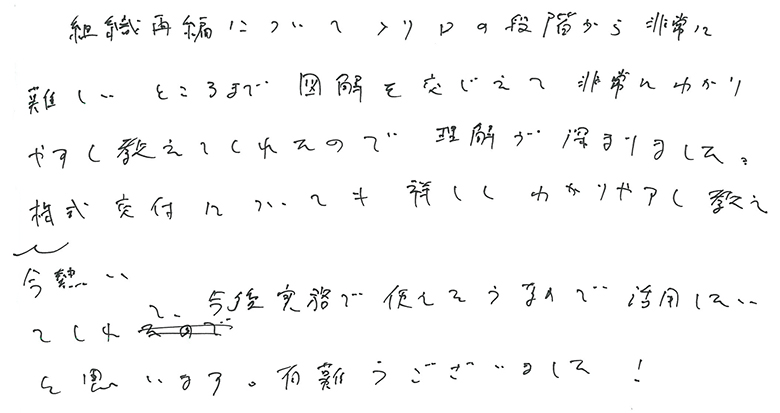 組織再編について入り口の段階から非常に
難しいところまで図解を交じえて非常にわかり
やすく教えてくれたので理解が深まりました。
株式交付についても詳しくわかりやすく教え
今熱い
てくれて、今後実務で使えそうなので活用したい
と思います。有難うございました！